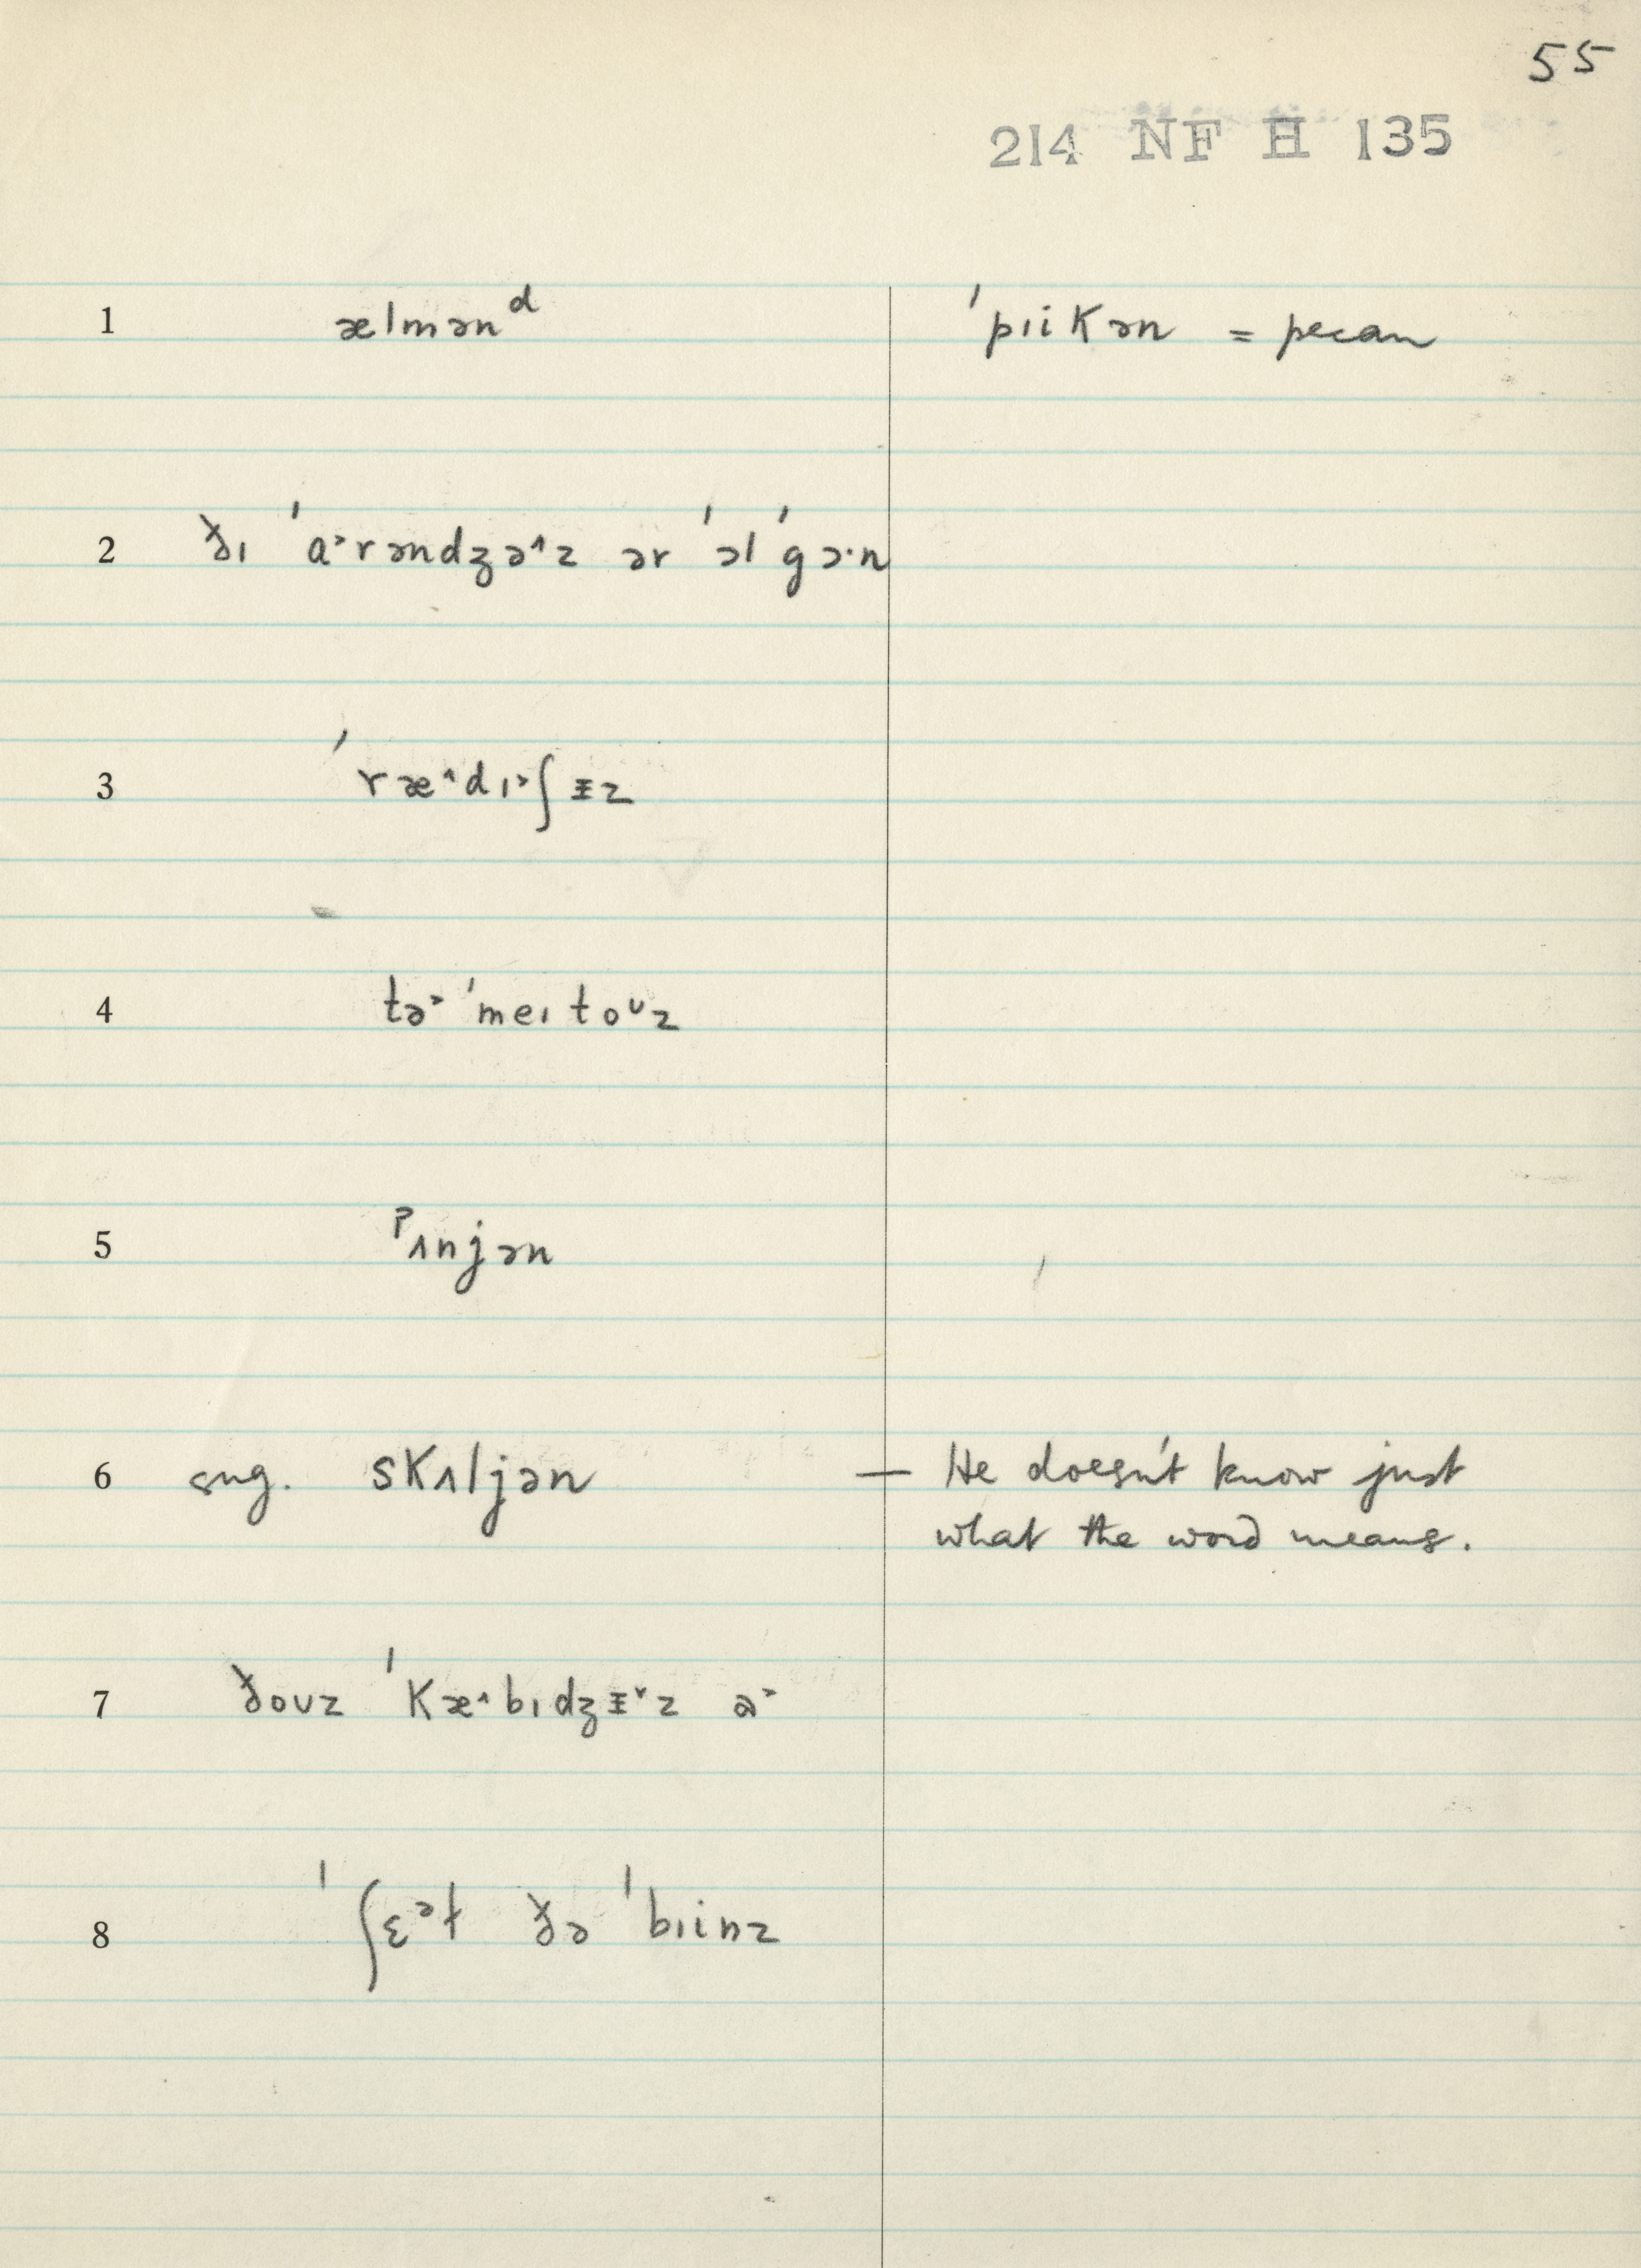 55
214 NF H 135
1 ælmən​ᵈ ˈpɪikən = pecan
2 ðɪ ˈɑ˃rəndʒə˄z ər ˈɔl ˈgɔ·n
3 ˈræ˄dɪ˃ʃɪ̵z
4 tə˃ ˈmeɪtoᶷz
5 ˀʌnjən
6 sug. skʌljən — He doesn't know just
what the word means.
7 ðoʊz ˈkæ˄bɪdʒɪ̵˅z ə˃
8 ˈʃɛᵊɫ ðə ˈbɪinz